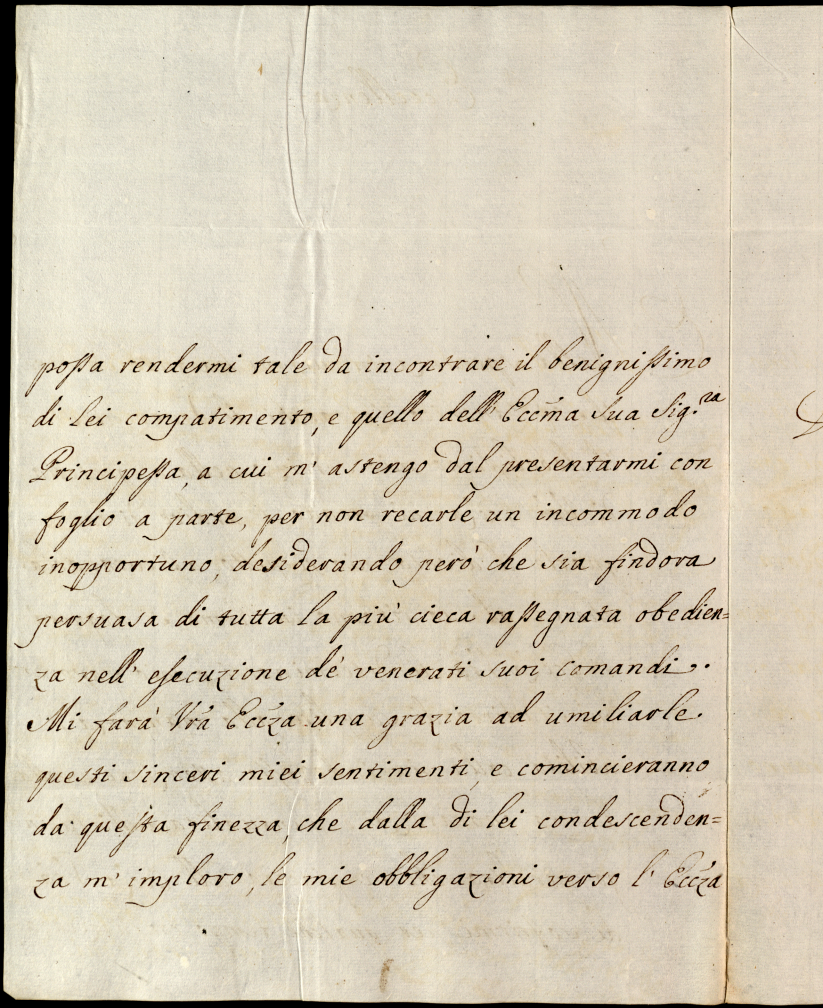 possa rendermi tale da incontrare il benignissimo
di Lei compatimento, e quello dell' Eccm̃a Sua Sig.ra
Principessa, a cui m' astengo dal presentarmi con
foglio a parte, per non recarle un incommodo
inopportuno, desiderando però che sia findora
persuasa di tutta la più cieca rassegnata obedien=
za nell' esecuzione de' venerati suoi comandi.
Mi farà Vr̃a Ecc̃za una grazia ad umiliarle
questi sinceri miei sentimenti, e comincieranno
da questa finezza, che dalla di lei condescenden=
za m' imploro, le mie obbligazioni verso l' Ecc̃za